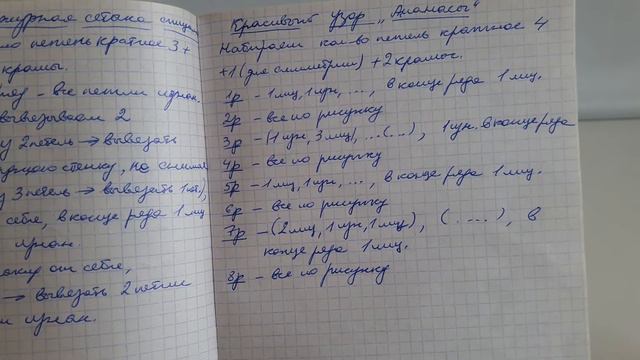 журная сетка спицами
ло петель кратное 3 +
кромы.
ряд - все петли изнан.
вывязываем 2
у 2 петель → вывязать
стенку, не снимая
у 3 петель → вывязать 1 лиц,
себе, в конце ряда 1 лиц
изнан.
от себя,
→ вывязать 2 петли
изнан.
Красивый узор "Ананасы"
Набираем кол-во петель кратное 4
+1 (для симметрии) + 2 кромоч.
1р - 1 лиц, 1 изн, ..., в конце ряда 1 лиц.
2р - все по рисунку
3р - (1 изн, 3 лиц), ...(...), 1 изн. в конце ряда
4р - все по рисунку
5р - 1 лиц, 1 изн, ..., в конце ряда 1 лиц.
6р - все по рисунку
7р - (2 лиц, 1 изн, 1 лиц), (....), в
конце ряда 1 лиц.
8р - все по рисунку